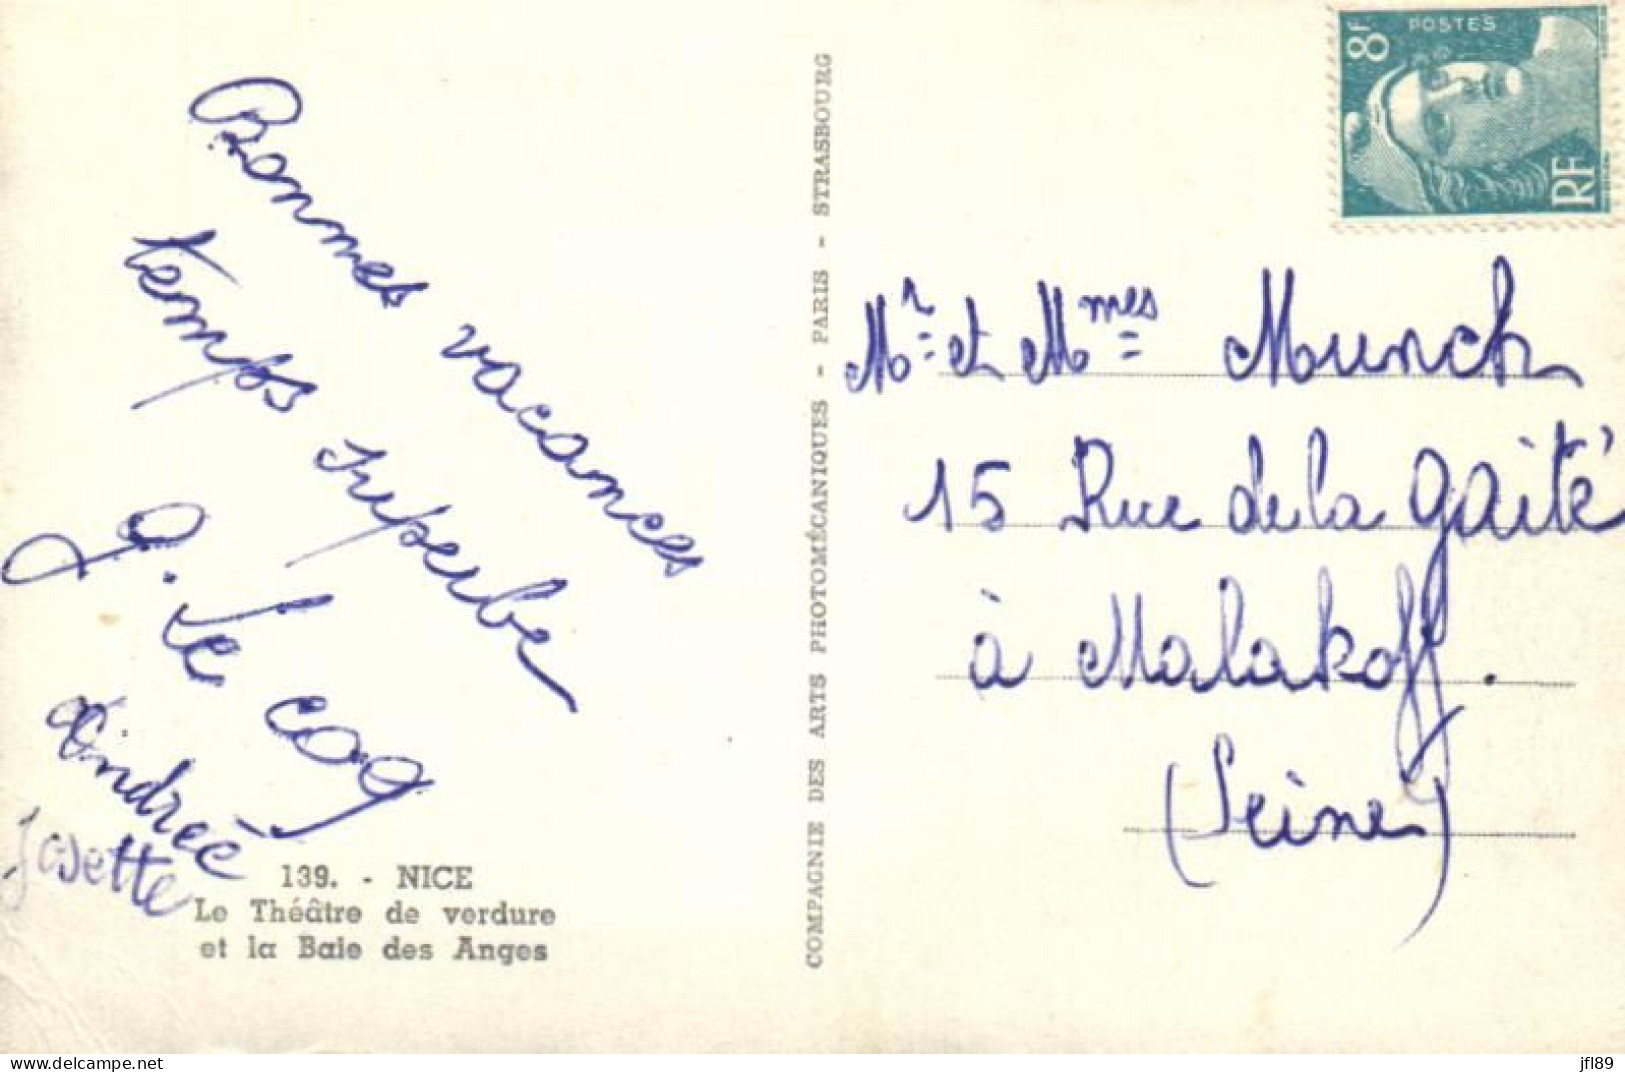 Bonnes vacances
temps superbe
J. Le coq
Andreé
Josette
139. - NICE
Le Théâtre de verdure
et la Baie des Anges
COMPAGNIE DES ARTS PHOTOMÉCANIQUES - PARIS - STRASBOURG
8F POSTES
RF
Mr et Mmes Munch
15 Rue de la Gaité
à Malakoff.
(Seine)
delcampe.net
jfl89